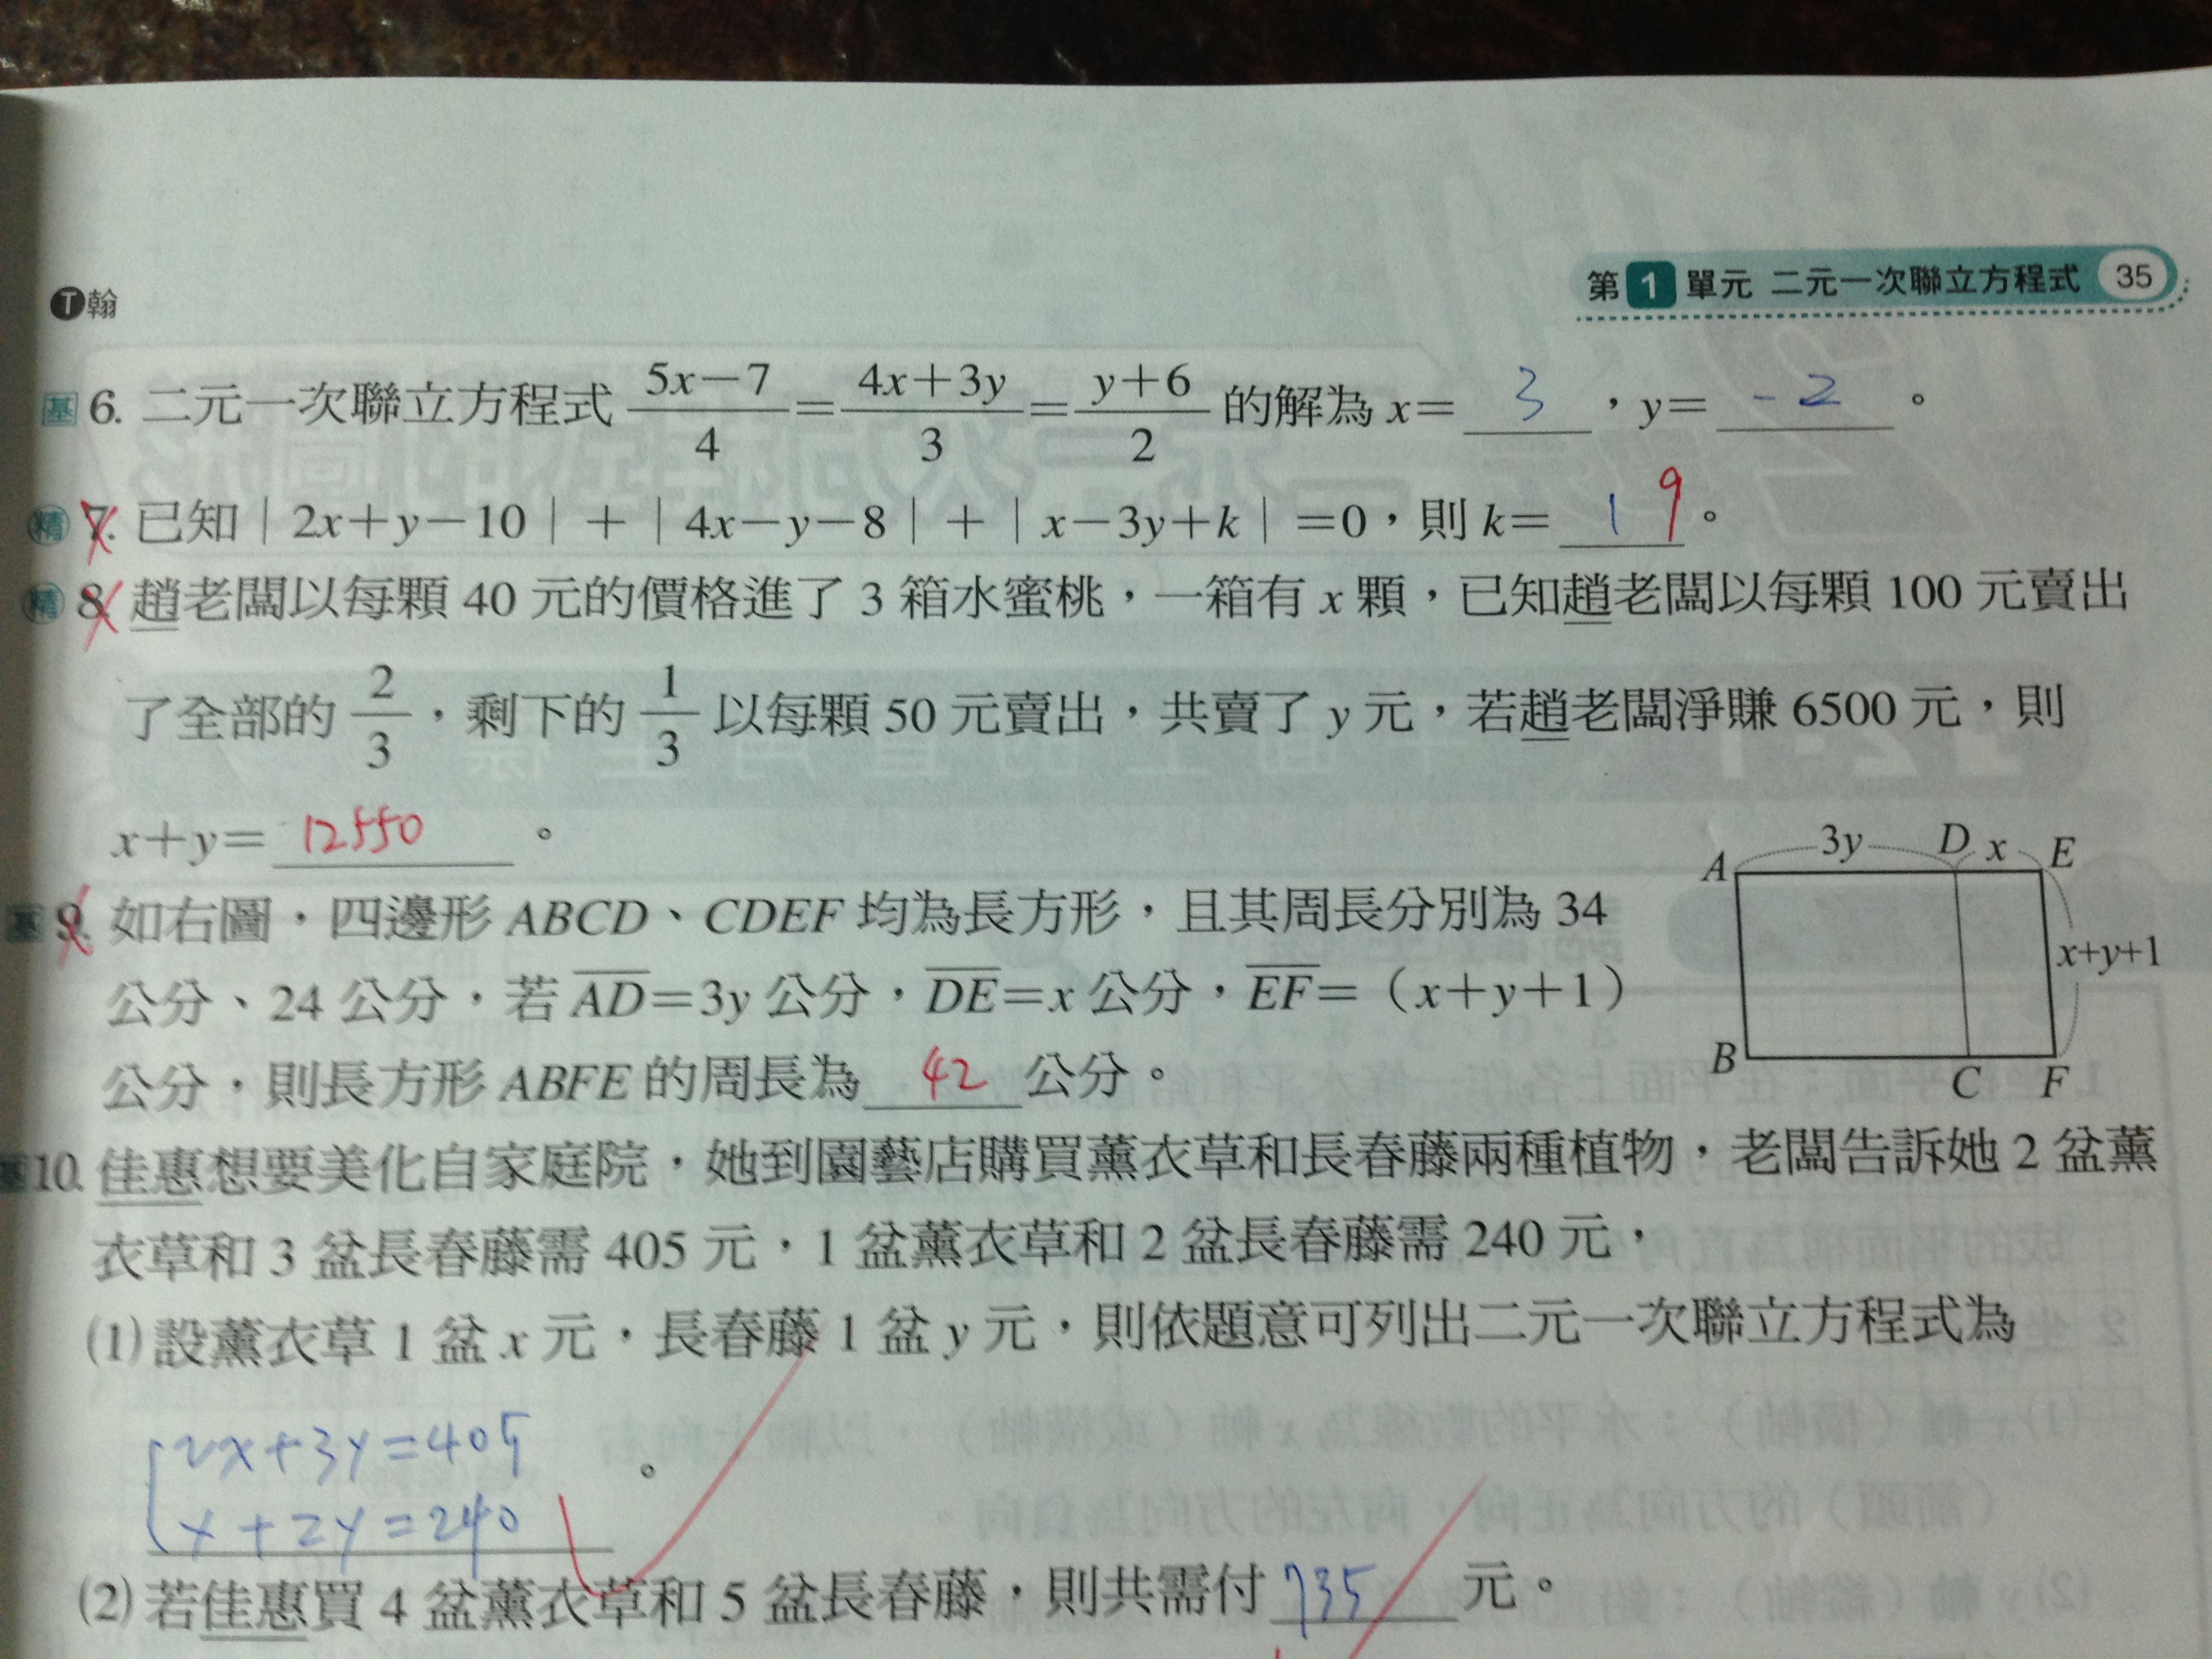 第1單元 二元一次聯立方程式 35
T翰
基 6. 二元一次聯立方程式 \frac{5x-7}{4}=\frac{4x+3y}{3}=\frac{y+6}{2} 的解為 x= 3 ,y= -2 。
精 7. 已知|2x+y-10|+|4x-y-8|+|x-3y+k|=0,則 k= 19 。
精 8. 趙老闆以每顆 40 元的價格進了 3 箱水蜜桃,一箱有 x 顆,已知趙老闆以每顆 100 元賣出
了全部的 \frac{2}{3},剩下的 \frac{1}{3} 以每顆 50 元賣出,共賣了 y 元,若趙老闆淨賺 6500 元,則
x+y= 12550 。
3y D x E
A
x+y+1
B C F
基 9. 如右圖,四邊形 ABCD、CDEF 均為長方形,且其周長分別為 34
公分、24 公分,若 \overline{AD}=3y 公分,\overline{DE}=x 公分,\overline{EF}=(x+y+1)
公分,則長方形 ABFE 的周長為 42 公分。
基 10. 佳惠想要美化自家庭院,她到園藝店購買薰衣草和長春藤兩種植物,老闆告訴她 2 盆薰
衣草和 3 盆長春藤需 405 元,1 盆薰衣草和 2 盆長春藤需 240 元,
(1) 設薰衣草 1 盆 x 元,長春藤 1 盆 y 元,則依題意可列出二元一次聯立方程式為
2x+3y=405
x+2y=240 。
(2) 若佳惠買 4 盆薰衣草和 5 盆長春藤,則共需付 735 元。